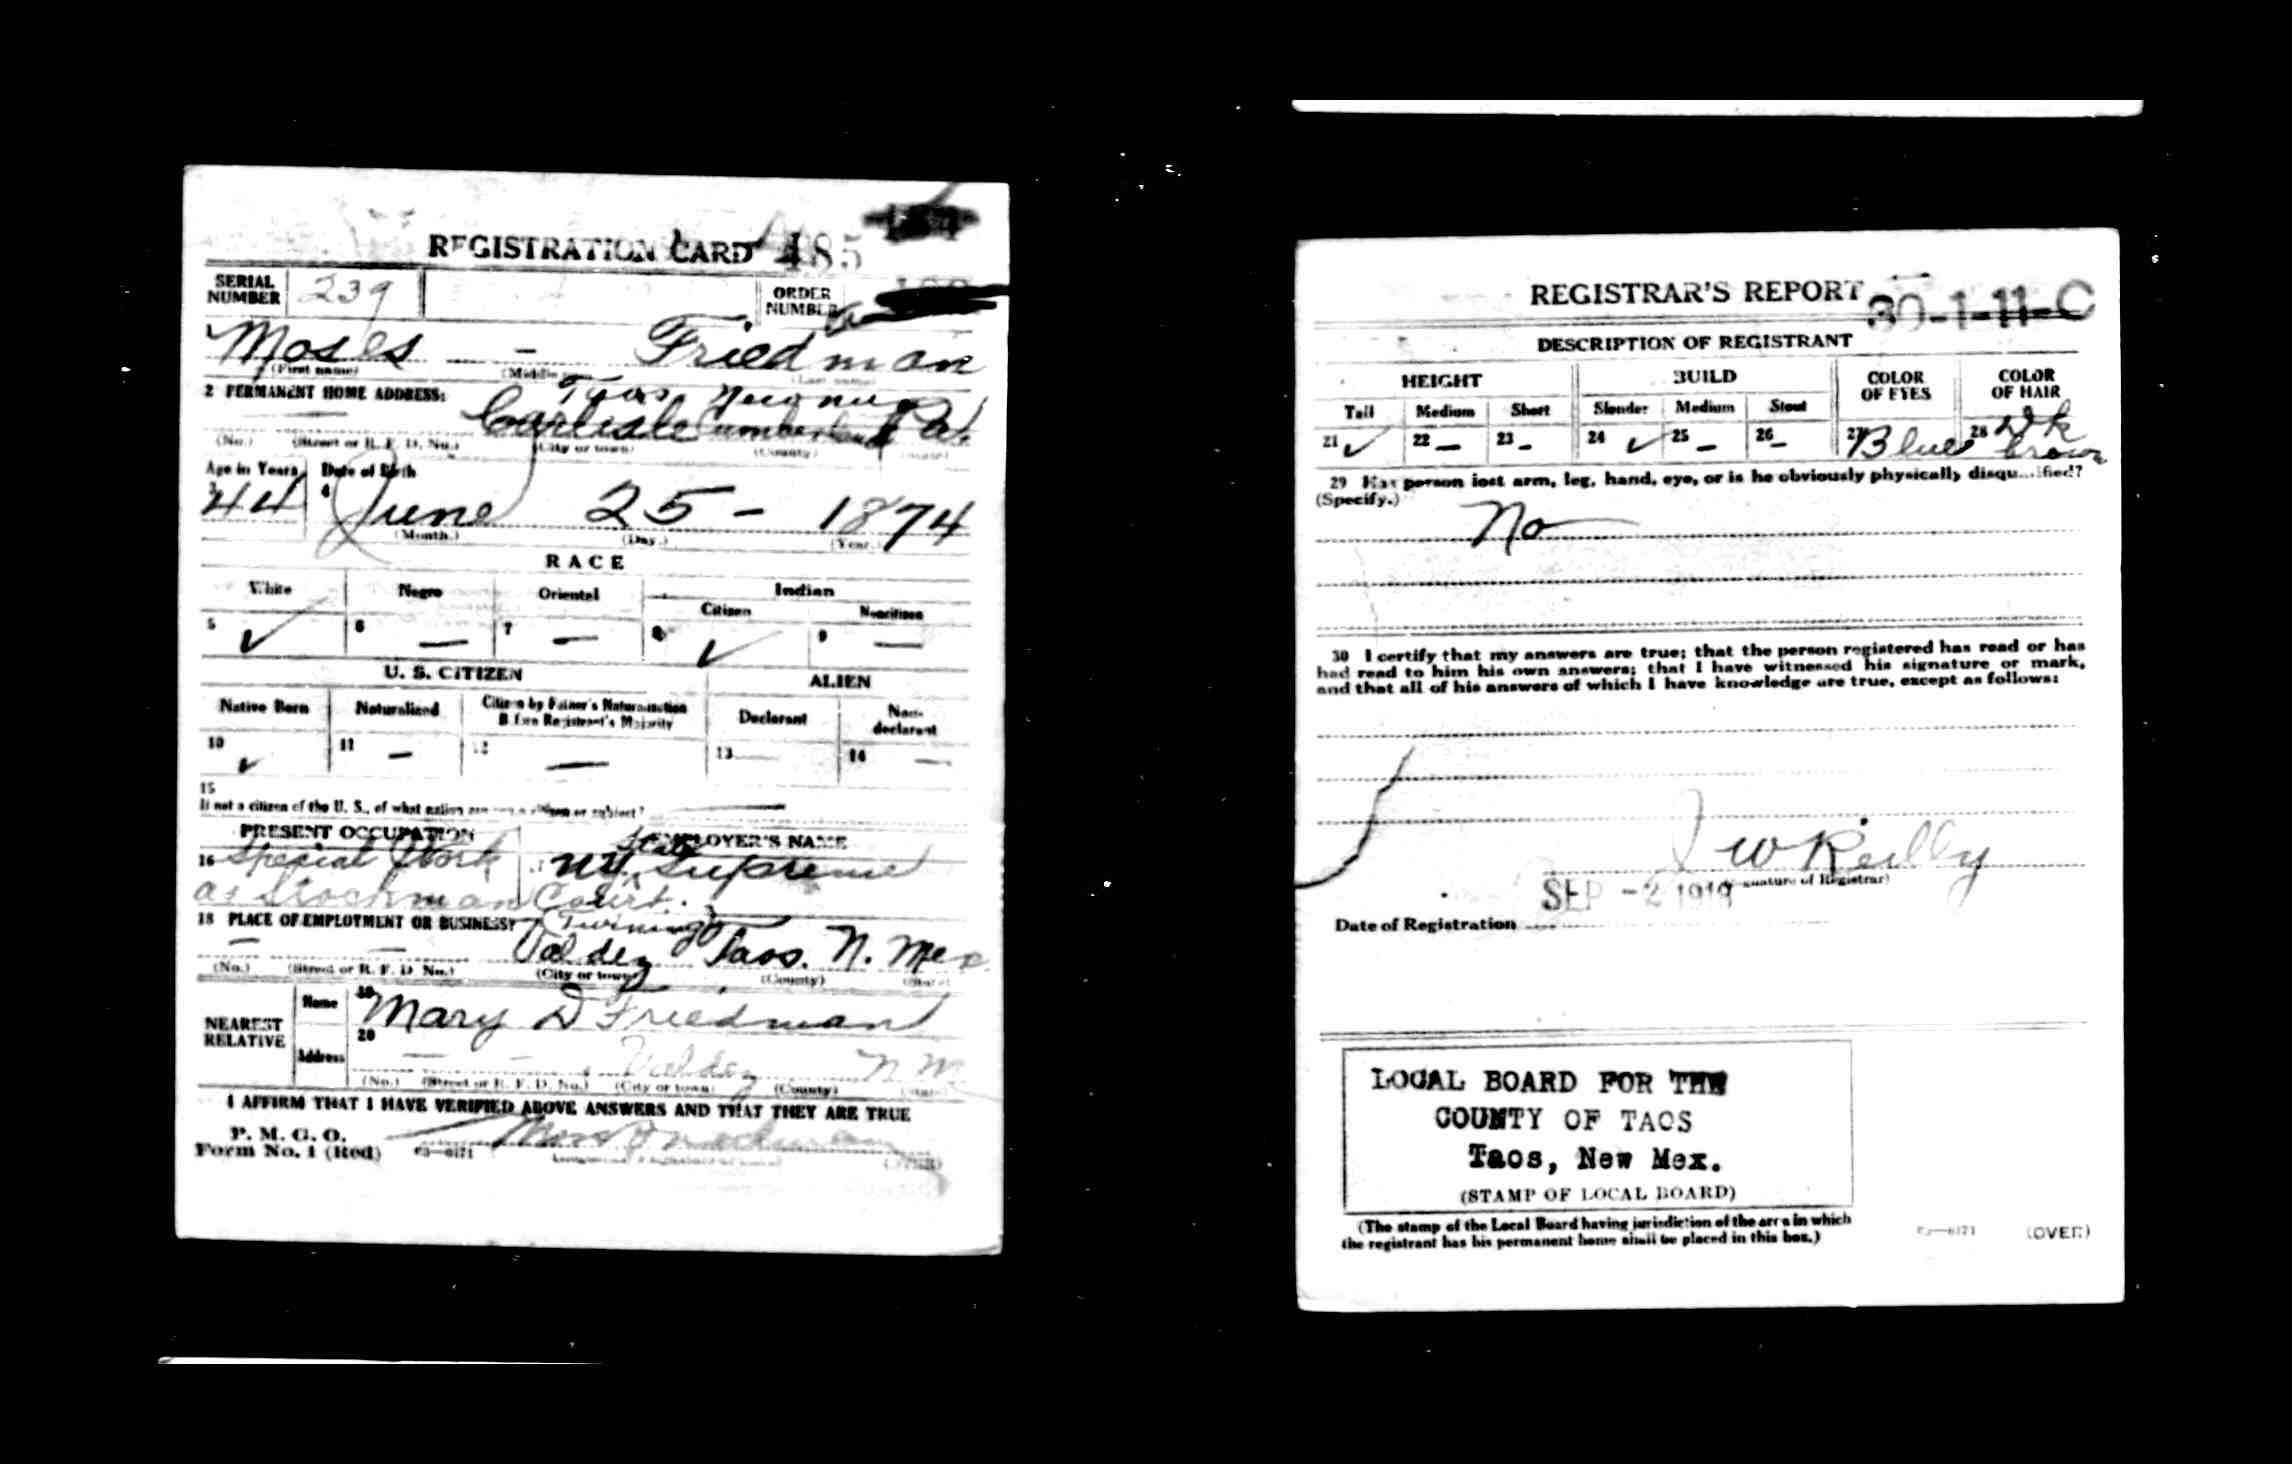 REGISTRATION CARD 485
SERIAL NUMBER 239
ORDER NUMBER
1 Moses - Friedman
(First name) (Middle name) (Last name)
2 PERMANENT HOME ADDRESS: Taos
Carlisle Cumberland Pa.
(No.) (Street or R. F. D. No.) (City or town) (County) (State)
Age in Years Date of Birth
3 44 4 June 25 - 1874
(Month.) (Day.) (Year.)
RACE
White Negro Oriental Indian
Citizen Noncitizen
5 ✓ 6 — 7 — 8 ✓ 9 —
U. S. CITIZEN ALIEN
Native Born Naturalized Citizen by Father's Naturalization Before Registrant's Majority Declarant Non-declarant
10 ✓ 11 — 12 — 13 — 14 —
15
If not a citizen of the U. S., of what nation are you a citizen or subject? —
PRESENT OCCUPATION EMPLOYER'S NAME
16 Special Work State Supreme
as Stockman Court.
18 PLACE OF EMPLOYMENT OR BUSINESS? (Twining)
— — Valdez Taos. N. Mex
(No.) (Street or R. F. D. No.) (City or town) (County) (State)
NEAREST RELATIVE
Name 19 Mary D Friedman
Address 20 — — Valdez N M
(No.) (Street or R. F. D. No.) (City or town) (County) (State)
I AFFIRM THAT I HAVE VERIFIED ABOVE ANSWERS AND THAT THEY ARE TRUE
P. M. G. O.
Form No. 1 (Red) 03—6171 Moses Friedman (OVER)
REGISTRAR'S REPORT 30-1-11-C
DESCRIPTION OF REGISTRANT
HEIGHT BUILD COLOR OF EYES COLOR OF HAIR
Tall Medium Short Slender Medium Stout
21 ✓ 22 — 23 — 24 ✓ 25 — 26 — 27 Blue 28 Dk brown
29 Has person lost arm, leg, hand, eye, or is he obviously physically disqualified?
(Specify.)
No
30 I certify that my answers are true; that the person registered has read or has
had read to him his own answers; that I have witnessed his signature or mark,
and that all of his answers of which I have knowledge are true, except as follows:
J W Reilly
(Signature of Registrar)
Date of Registration SEP -2 1919
LOCAL BOARD FOR THE
COUNTY OF TAOS
Taos, New Mex.
(STAMP OF LOCAL BOARD)
(The stamp of the Local Board having jurisdiction of the area in which
the registrant has his permanent home shall be placed in this box.)
03—6171 (OVER)